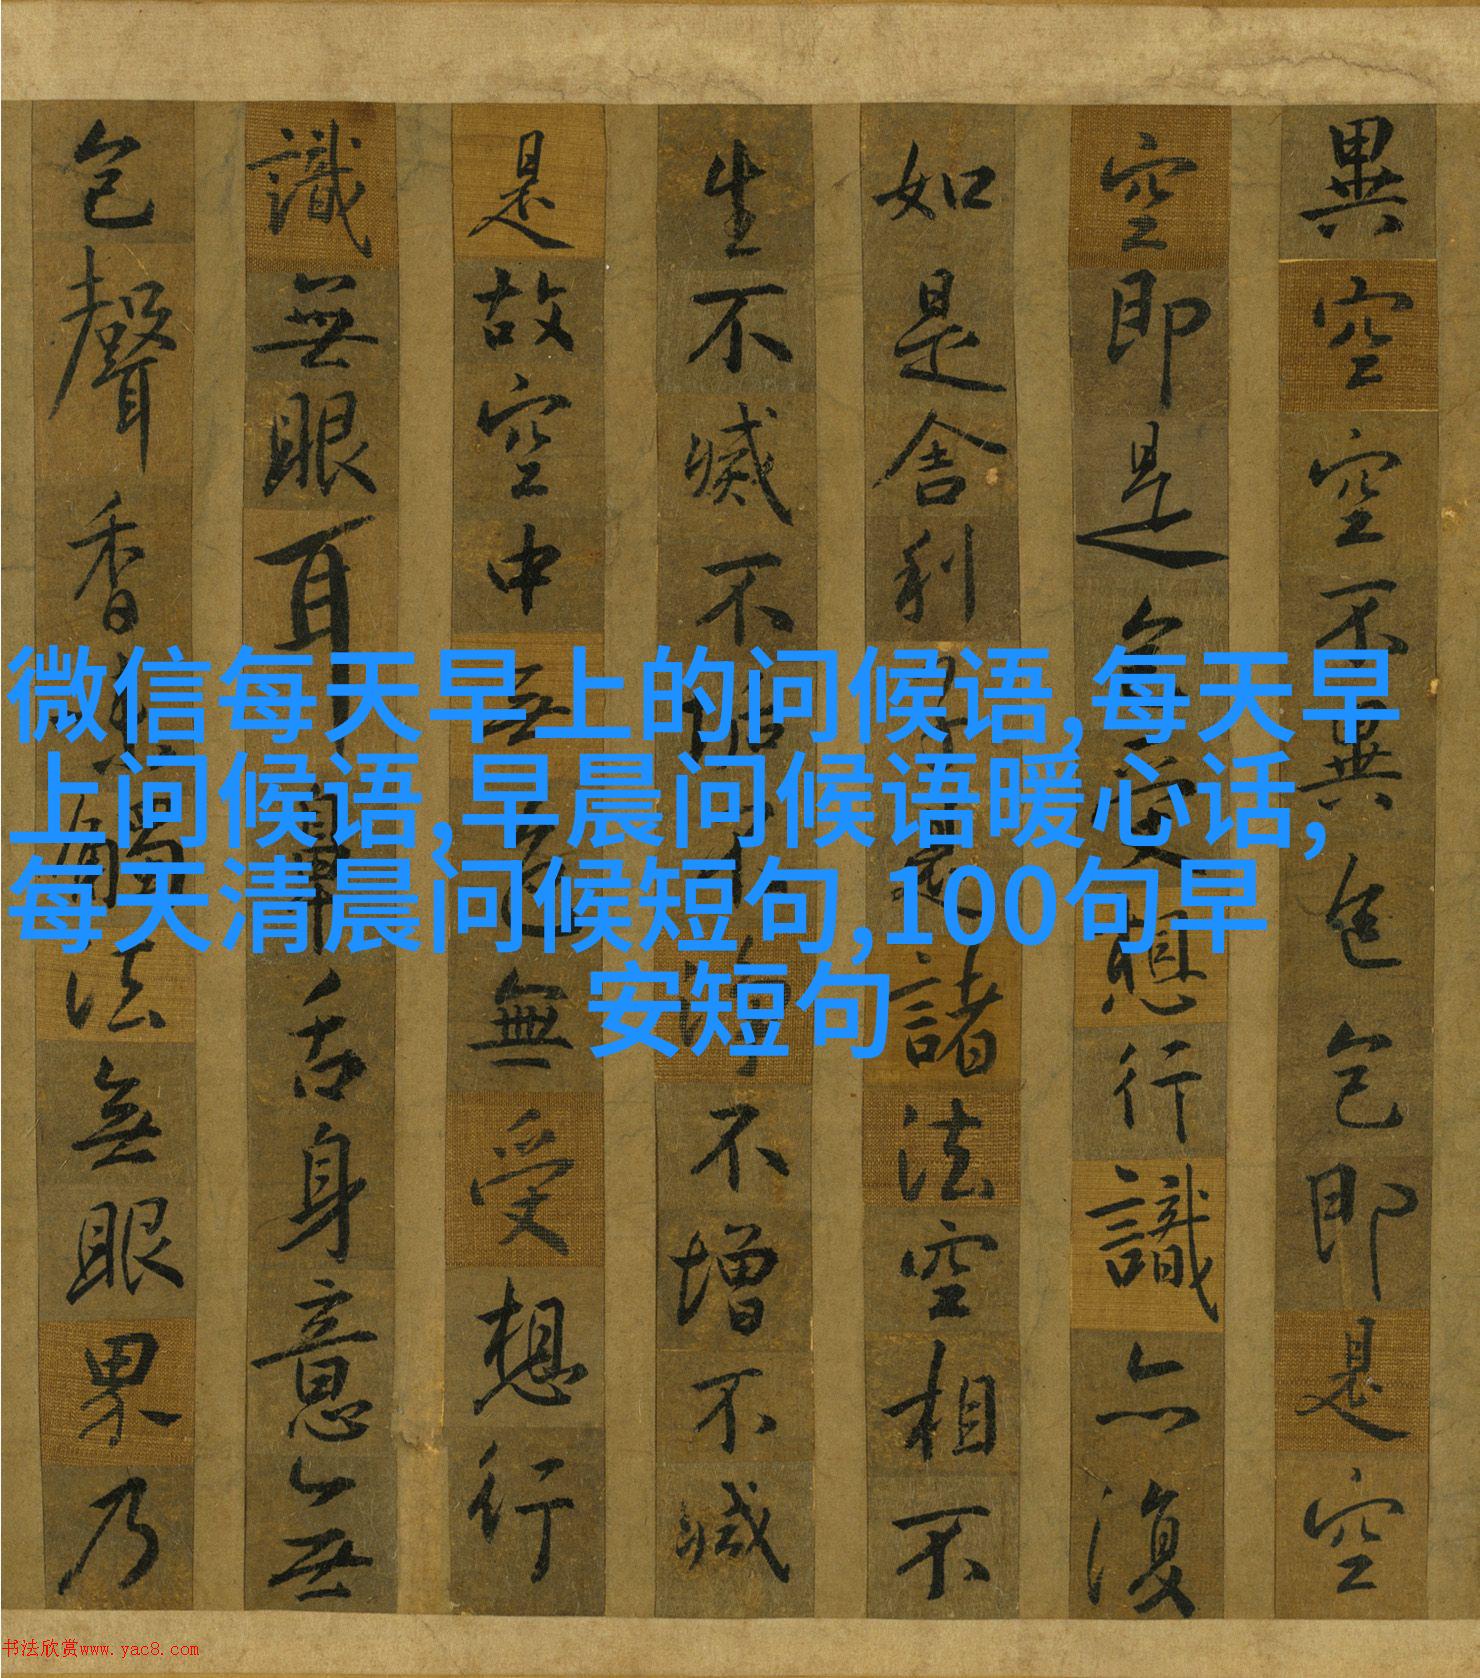 異空空不異色色即是空
空即是色受想行識亦復
如是舍利子是諸法空相不
生不滅不垢不淨不增不減
是故空中無色無受想行
識無眼耳鼻舌身意無
色聲香味觸法無眼界乃
微信每天早上的问候语,每天早
上问候语,早晨问候语暖心话,
每天清晨问候短句,100句早
安短句
书法欣赏www.yac8.com